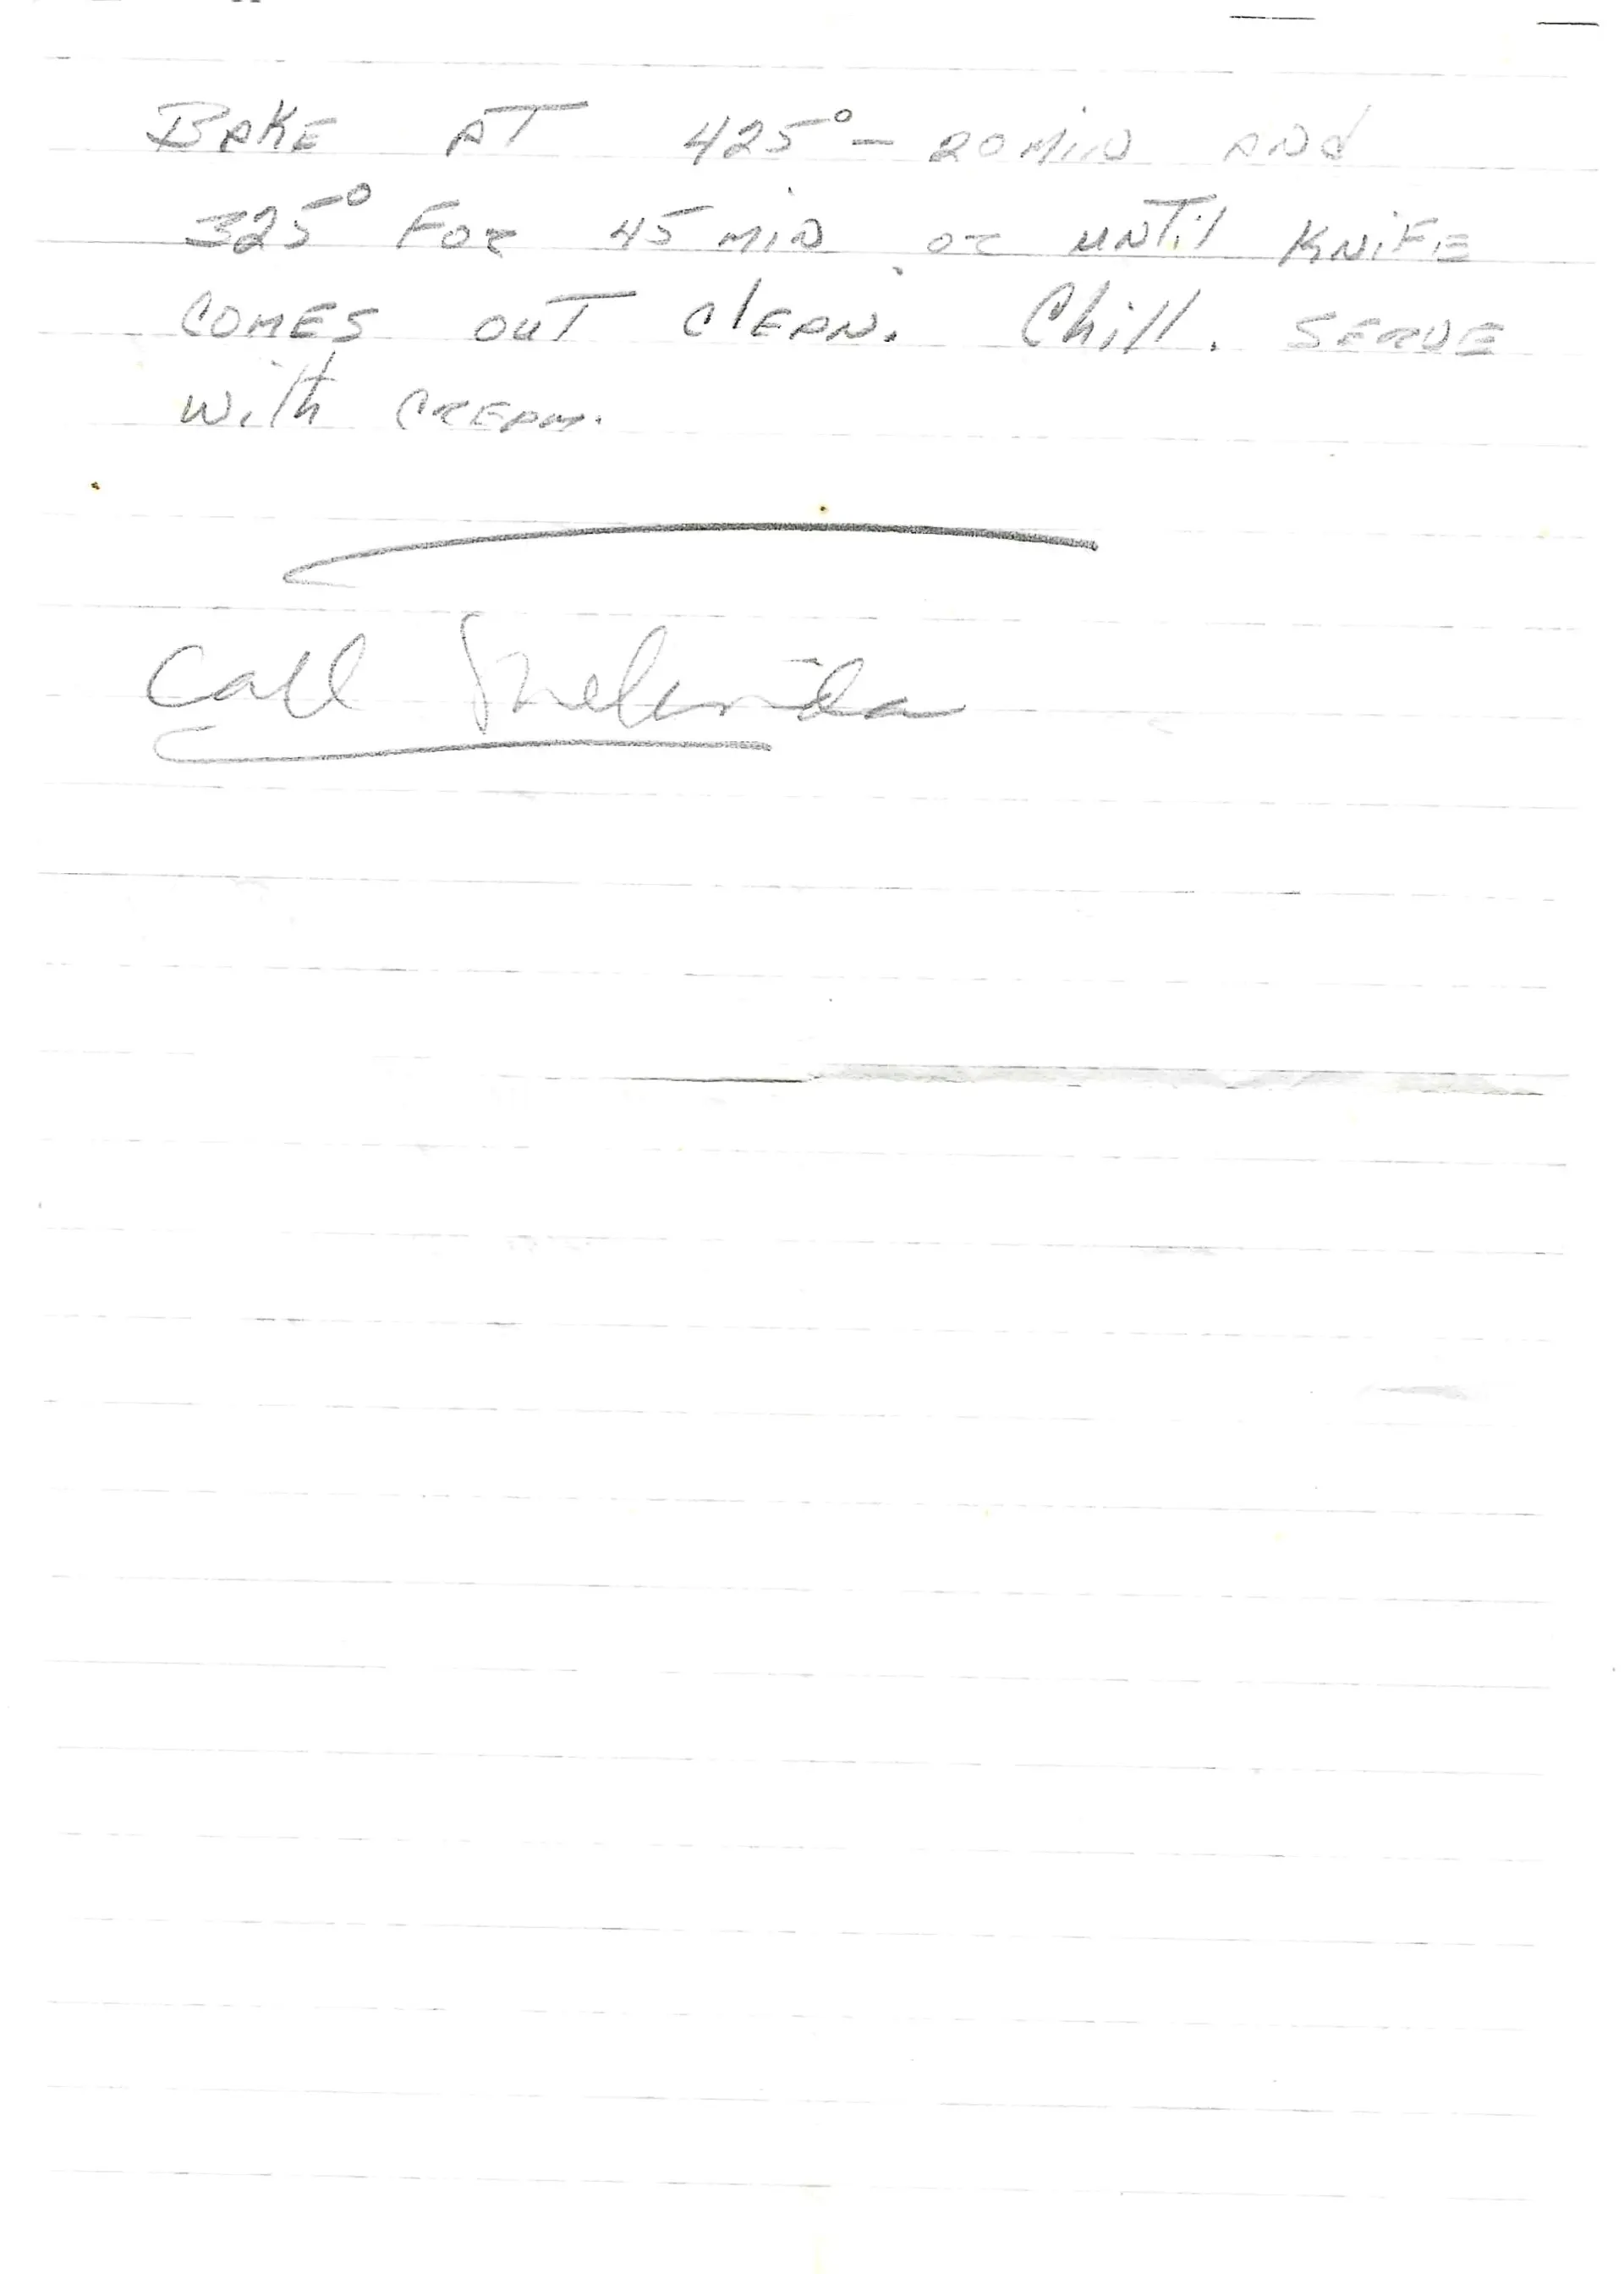 BAKE AT 425° - 20 MiN ANd
325° FOR 45 MIN OR UNTil KNiFE
COMES OUT ClEAN. Chill. SERVE
With CREAM.
Call